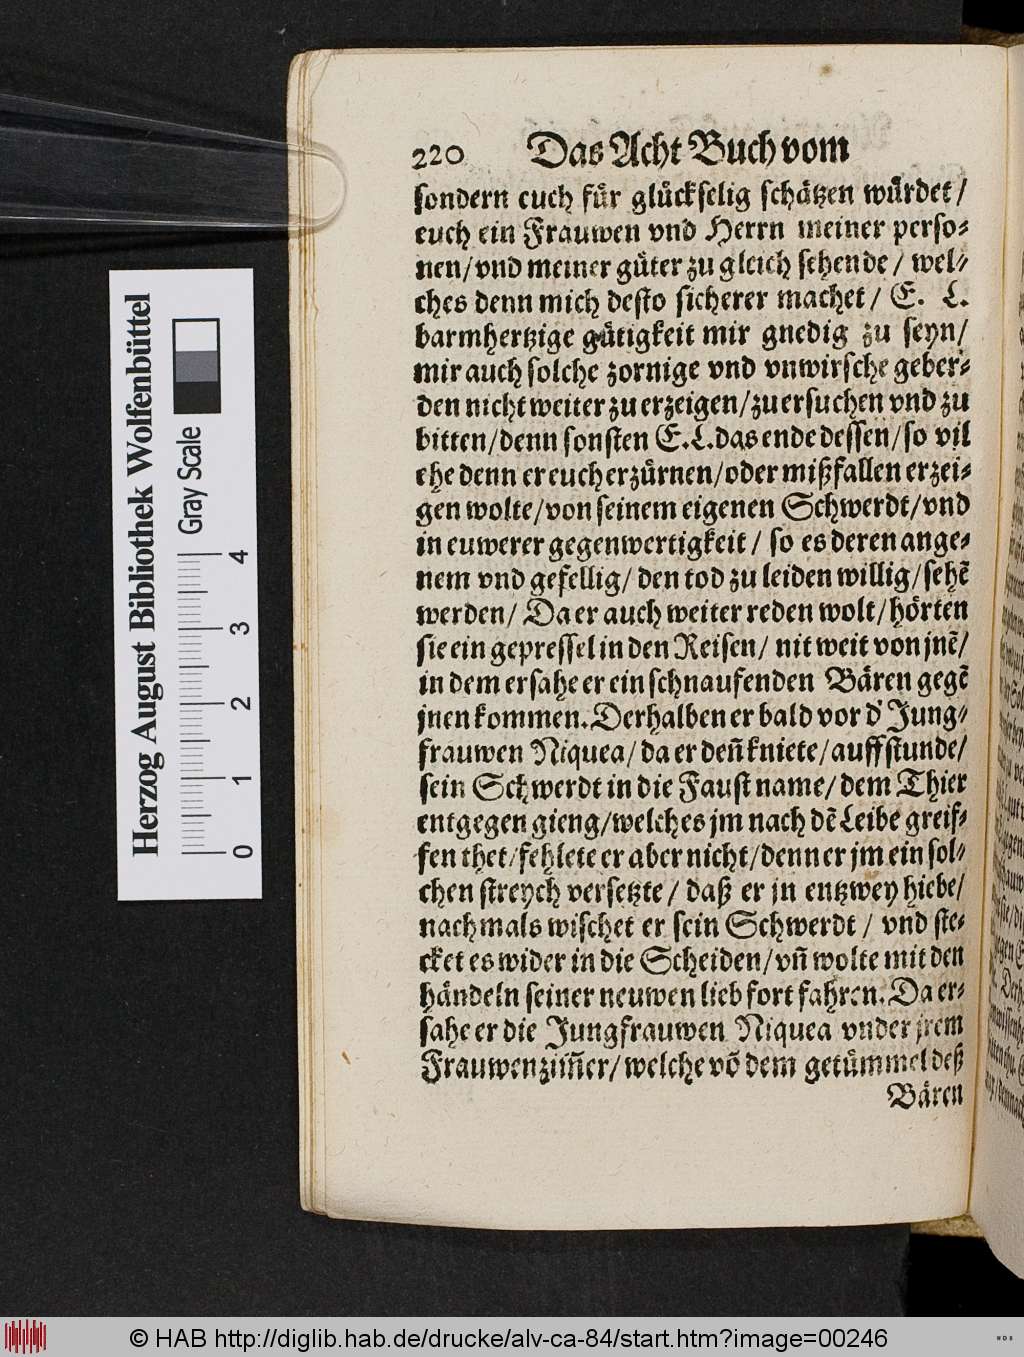 220 Das Acht Buch vom
sondern euch für glückselig schätzen würdet/
euch ein Frauwen vnd Herrn meiner perso-
nen/vnd meiner güter zu gleich sehende/ wel-
ches denn mich desto sicherer machet/ E. L.
barmhertzige gütigkeit mir gnedig zu seyn/
mir auch solche zornige vnd vnwirsche geber-
den nicht weiter zu erzeigen/zu ersuchen vnd zu
bitten/denn sonsten E.L.das ende dessen/so vil
ehe denn er euch erzürnen/oder mißfallen erzei-
gen wolte/von seinem eigenen Schwerdt/vnd
in euwerer gegenwertigkeit/ so es deren ange-
nem vnd gefellig/ den tod zu leiden willig/sehẽ
werden/ Da er auch weiter reden wolt/hörten
sie ein gepressel in den Reisen/ nit weit von jnẽ/
in dem ersahe er ein schnaufenden Bären gegẽ
jnen kommen. Derhalben er bald vor d' Jung-
frauwen Niquea/ da er deñ kniete/auffstunde/
sein Schwerdt in die Faust name/ dem Thier
entgegen gieng/welches jm nach dẽ Leibe greif-
fen thet/fehlete er aber nicht/denn er jm ein sol-
chen streych versetzte/ daß er jn entzwey hiebe/
nachmals wischet er sein Schwerdt / vnd ste-
cket es wider in die Scheiden/vñ wolte mit den
händeln seiner neuwen lieb fort fahren. Da er-
sahe er die Jungfrauwen Niquea vnder jrem
Frauwenzim̃er/ welche võ dem getümmel deß
Bären
Herzog August Bibliothek Wolfenbüttel
Gray Scale
0 1 2 3 4
© HAB http://diglib.hab.de/drucke/alv-ca-84/start.htm?image=00246